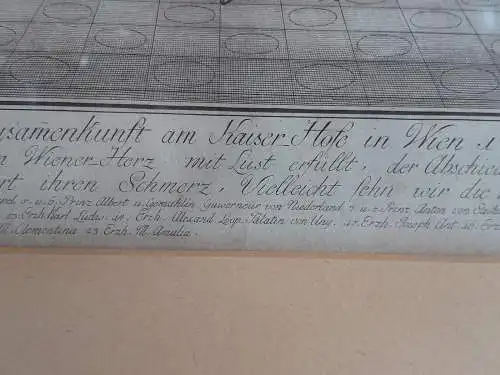 usam̄enkunft am Kaiser Hofe in Wien
Wiener Herz mit Lust erfüllt, der Abschied
ihren Schmerz, Vielleicht sehn wir die
u. Prinz Albert u. Gemahlin Guwerneur von Niederland 7 u. Prinz Anton von
Erzh. Karl Ludw. Erzh. Alexand Leop. Palatin von Ung. Erzh. Joseph Ant.
M. Clementina 23 Erzh. M. Amalia.